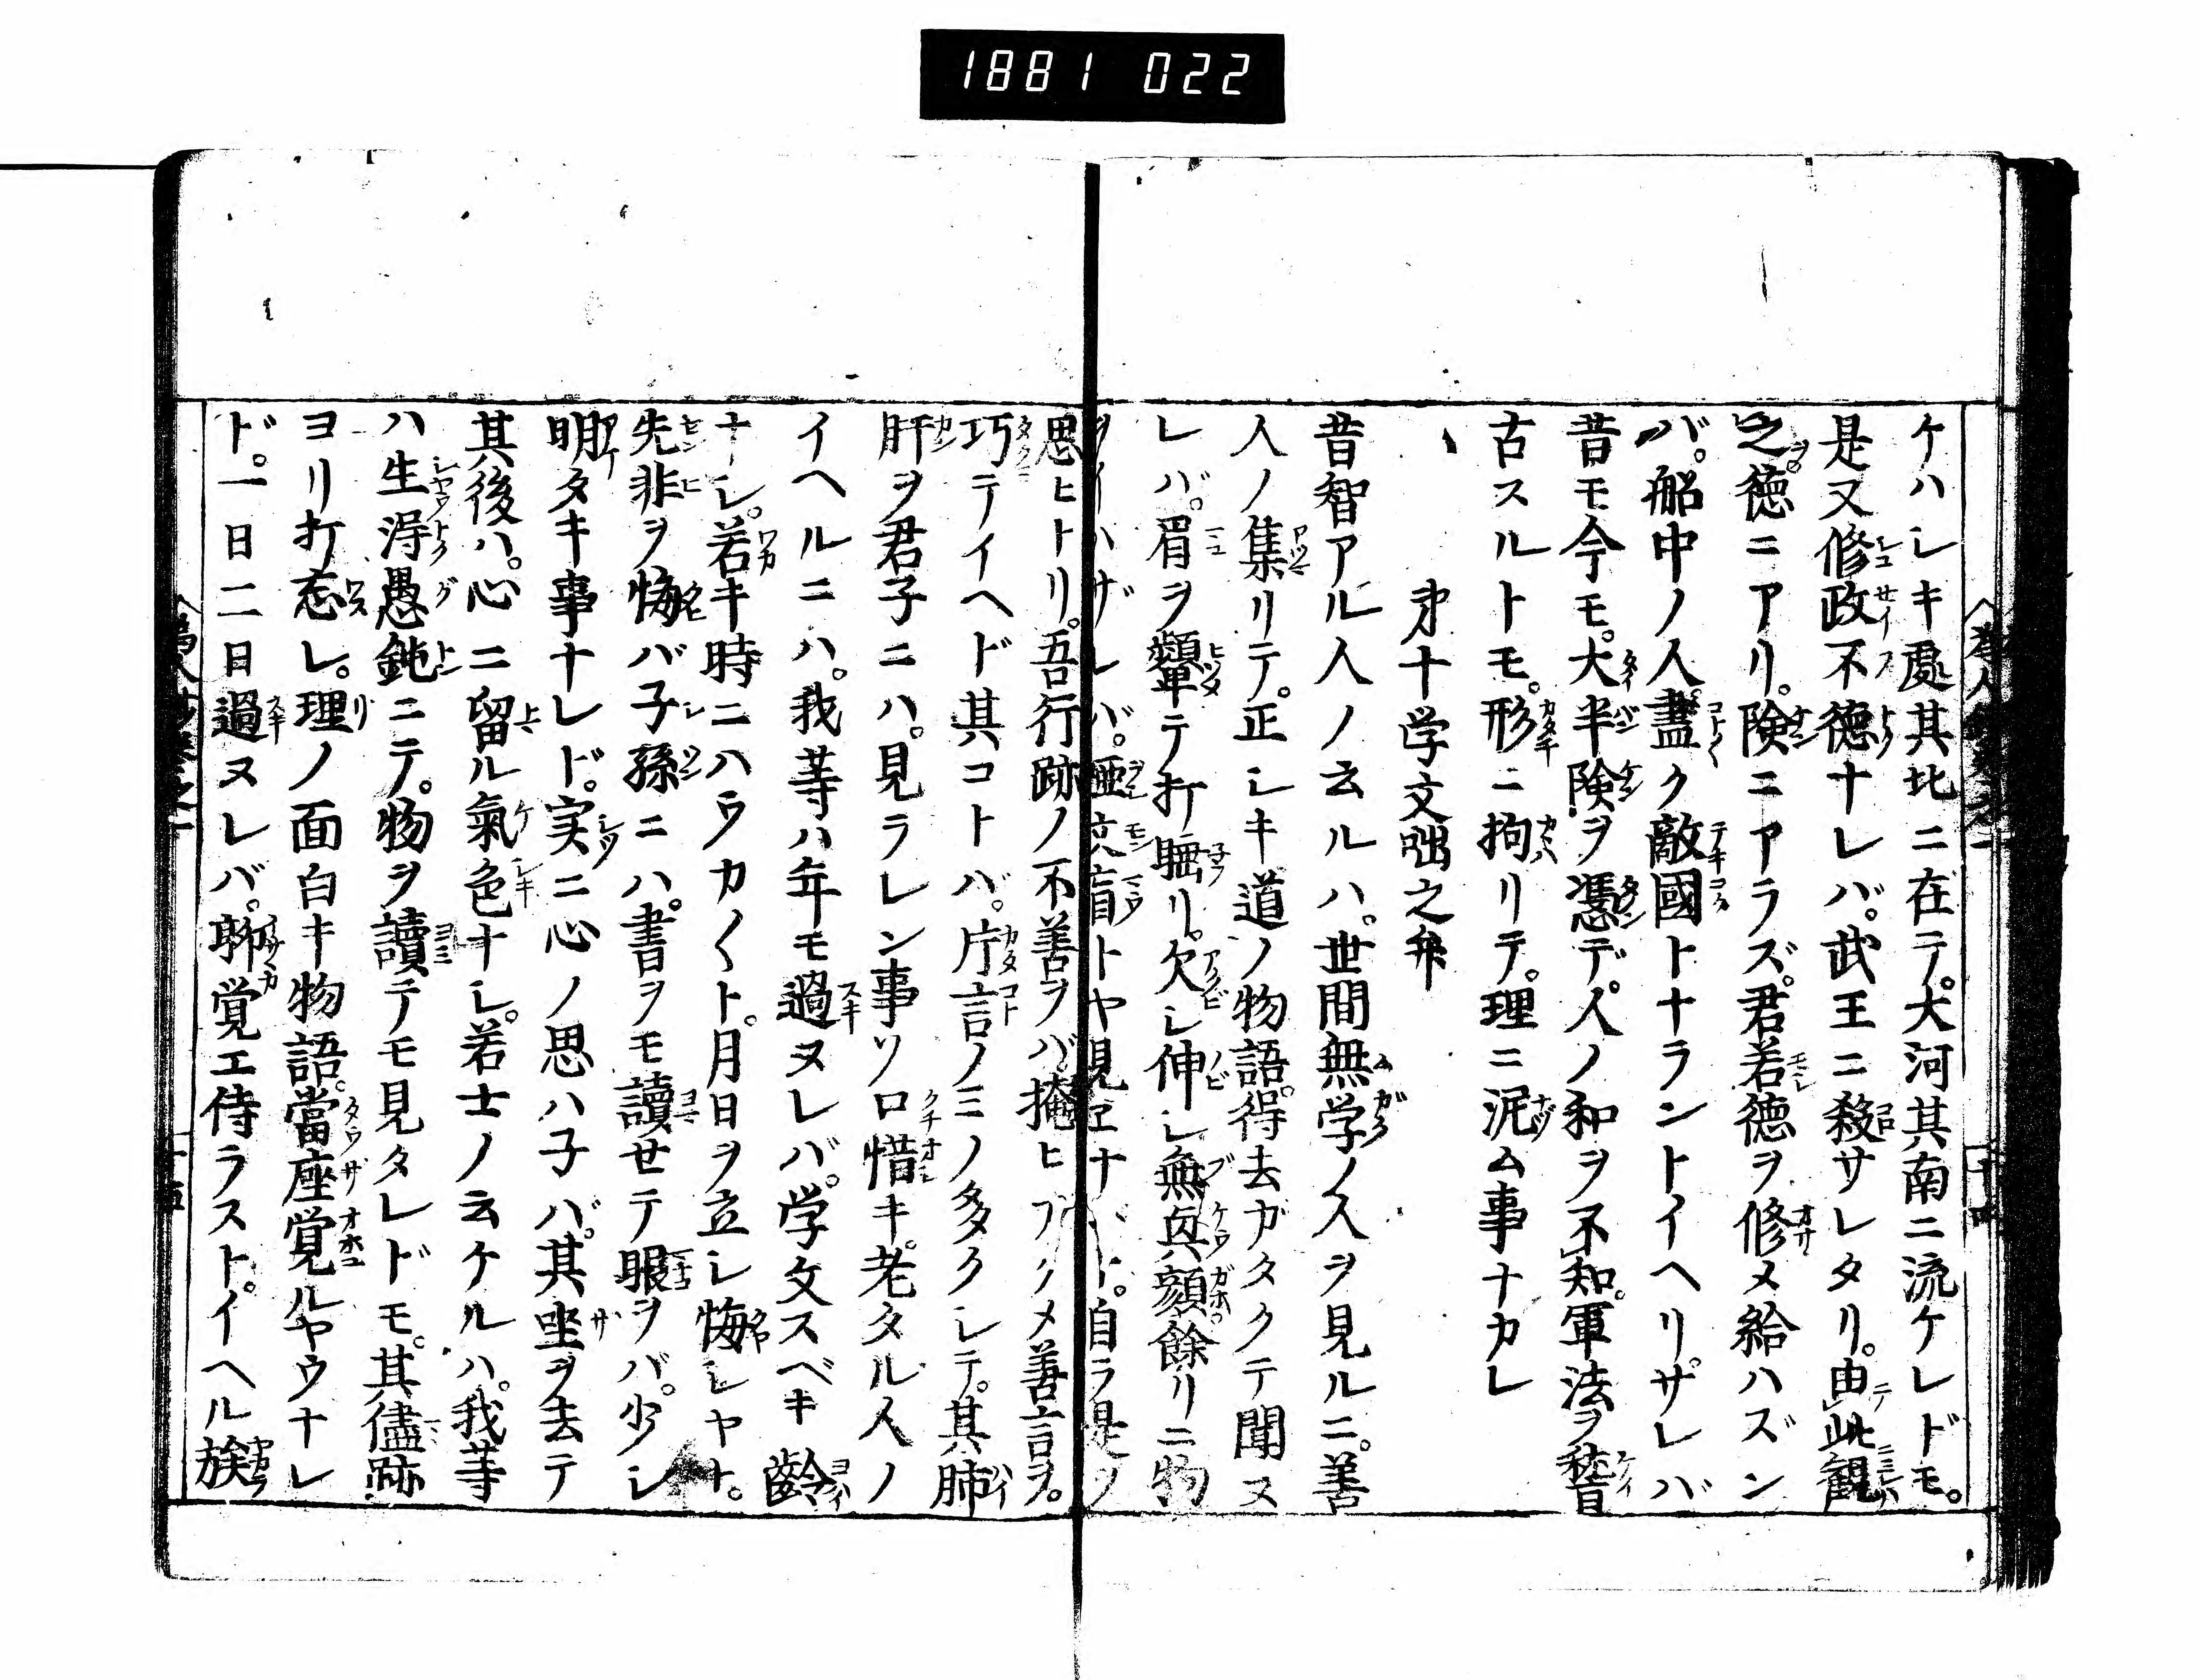 1881 022
ケハシキ處其北ニ在テ。大河其南ニ流ケレドモ。
是又修政不徳ナレバ。武王ニ殺サレタリ。由此観
之。徳ニアリ。険ニアラズ。君若徳ヲ修メ給ハズン
バ。船中ノ人。盡ク敵國トナラントイヘリ。サレバ
昔モ今モ。大半険ヲ憑デ。人ノ和ヲ不知。軍法ヲ稽
古スルトモ。形ニ拘リテ。理ニ泥ム事ナカレ
第十学文咄之弁
昔智アル人ノ云ルハ。世間無学ノ人ヲ見ルニ。善
人ノ集リテ。正シキ道ノ物語。得去ガタクテ聞ヌ
レバ。眉ヲ顰テ打睡リ。欠シ伸シ無興顔餘リニ物
ヲイハザレバ。瘂盲トヤ見ヱナバト。自ラ是ノ
思ヒトリ。吾行跡ノ不善ヲバ掩ヒカクメ善言ヲ。
巧テイヘド其コトバ。片言ノミノ多クシテ。其肺
肝ヲ君子ニハ。見ラレン事ソ口惜キ。老タル人ノ
イヘルニハ。我等ハ年モ過ヌレバ。学文スベキ齡
ナシ。若キ時ニハウカ〱ト。月日ヲ立シ悔シヤナ。
先非ヲ悔バ子孫ニハ。書ヲモ讀セテ眼ヲバ。少シ
明タキ事ナレド。実ニ心ノ思ハ子バ。其坐ヲ去テ
其後ハ。心ニ留ル氣色ナシ。若士ノ云ケルハ。我等
ハ生得愚鈍ニテ。物ヲ讀テモ見タレドモ。其儘跡
ヨリ打忘レ。理ノ面白キ物語。當座覚ルヤウナレ
ド。一日二日過ヌレバ。聊覚エ侍ラスト。イヘル族